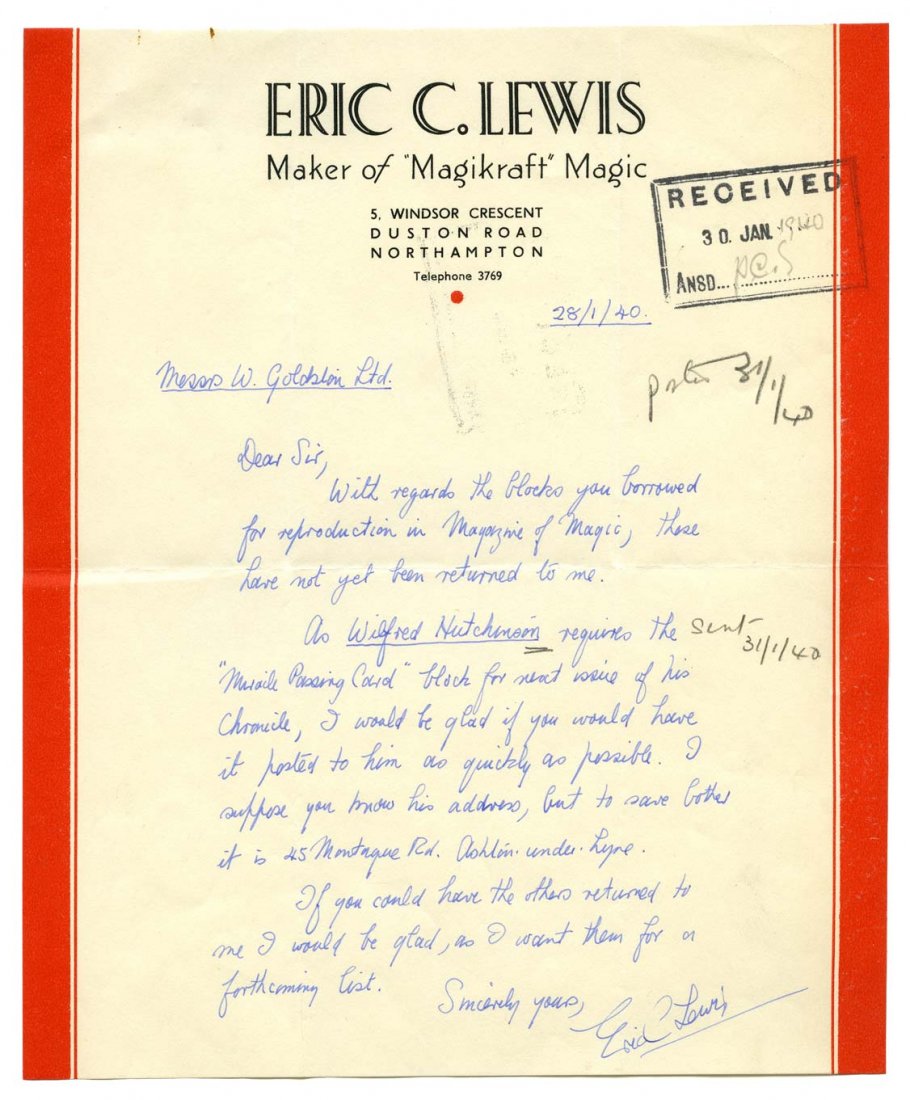 ERIC C. LEWIS
Maker of "Magikraft" Magic
5, WINDSOR CRESCENT
DUSTON ROAD
NORTHAMPTON
Telephone 3769
RECEIVED
30. JAN. 1940
ANSD...
28/1/40.
Messrs W. Goldston Ltd.
posted 31/1/40
Dear Sir,
With regards the blocks you borrowed
for reproduction in Magazine of Magic, these
have not yet been returned to me.
As Wilfred Hutchinson requires the
sent
31/1/40
"Miracle Passing Card" block for next issue of his
Chronicle, I would be glad if you would have
it posted to him as quickly as possible. I
suppose you know his address, but to save bother
it is 45 Montague Rd. Ashton-under-Lyne.
If you could have the others returned to
me I would be glad, as I want them for a
forthcoming list.
Sincerely yours,
Eric C Lewis